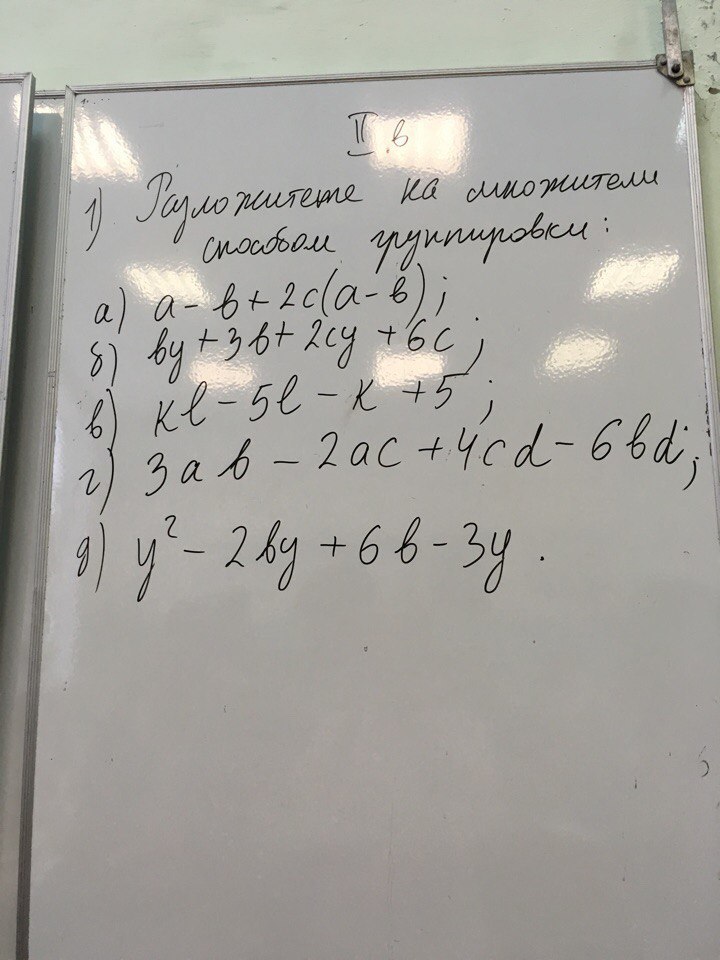 II в
1) Разложите на множители
способом группировки:
а) a - b + 2c(a - b);
б) by + 3b + 2cy + 6c;
в) kl - 5l - k + 5;
г) 3ab - 2ac + 4cd - 6bd;
д) y² - 2by + 6b - 3y.